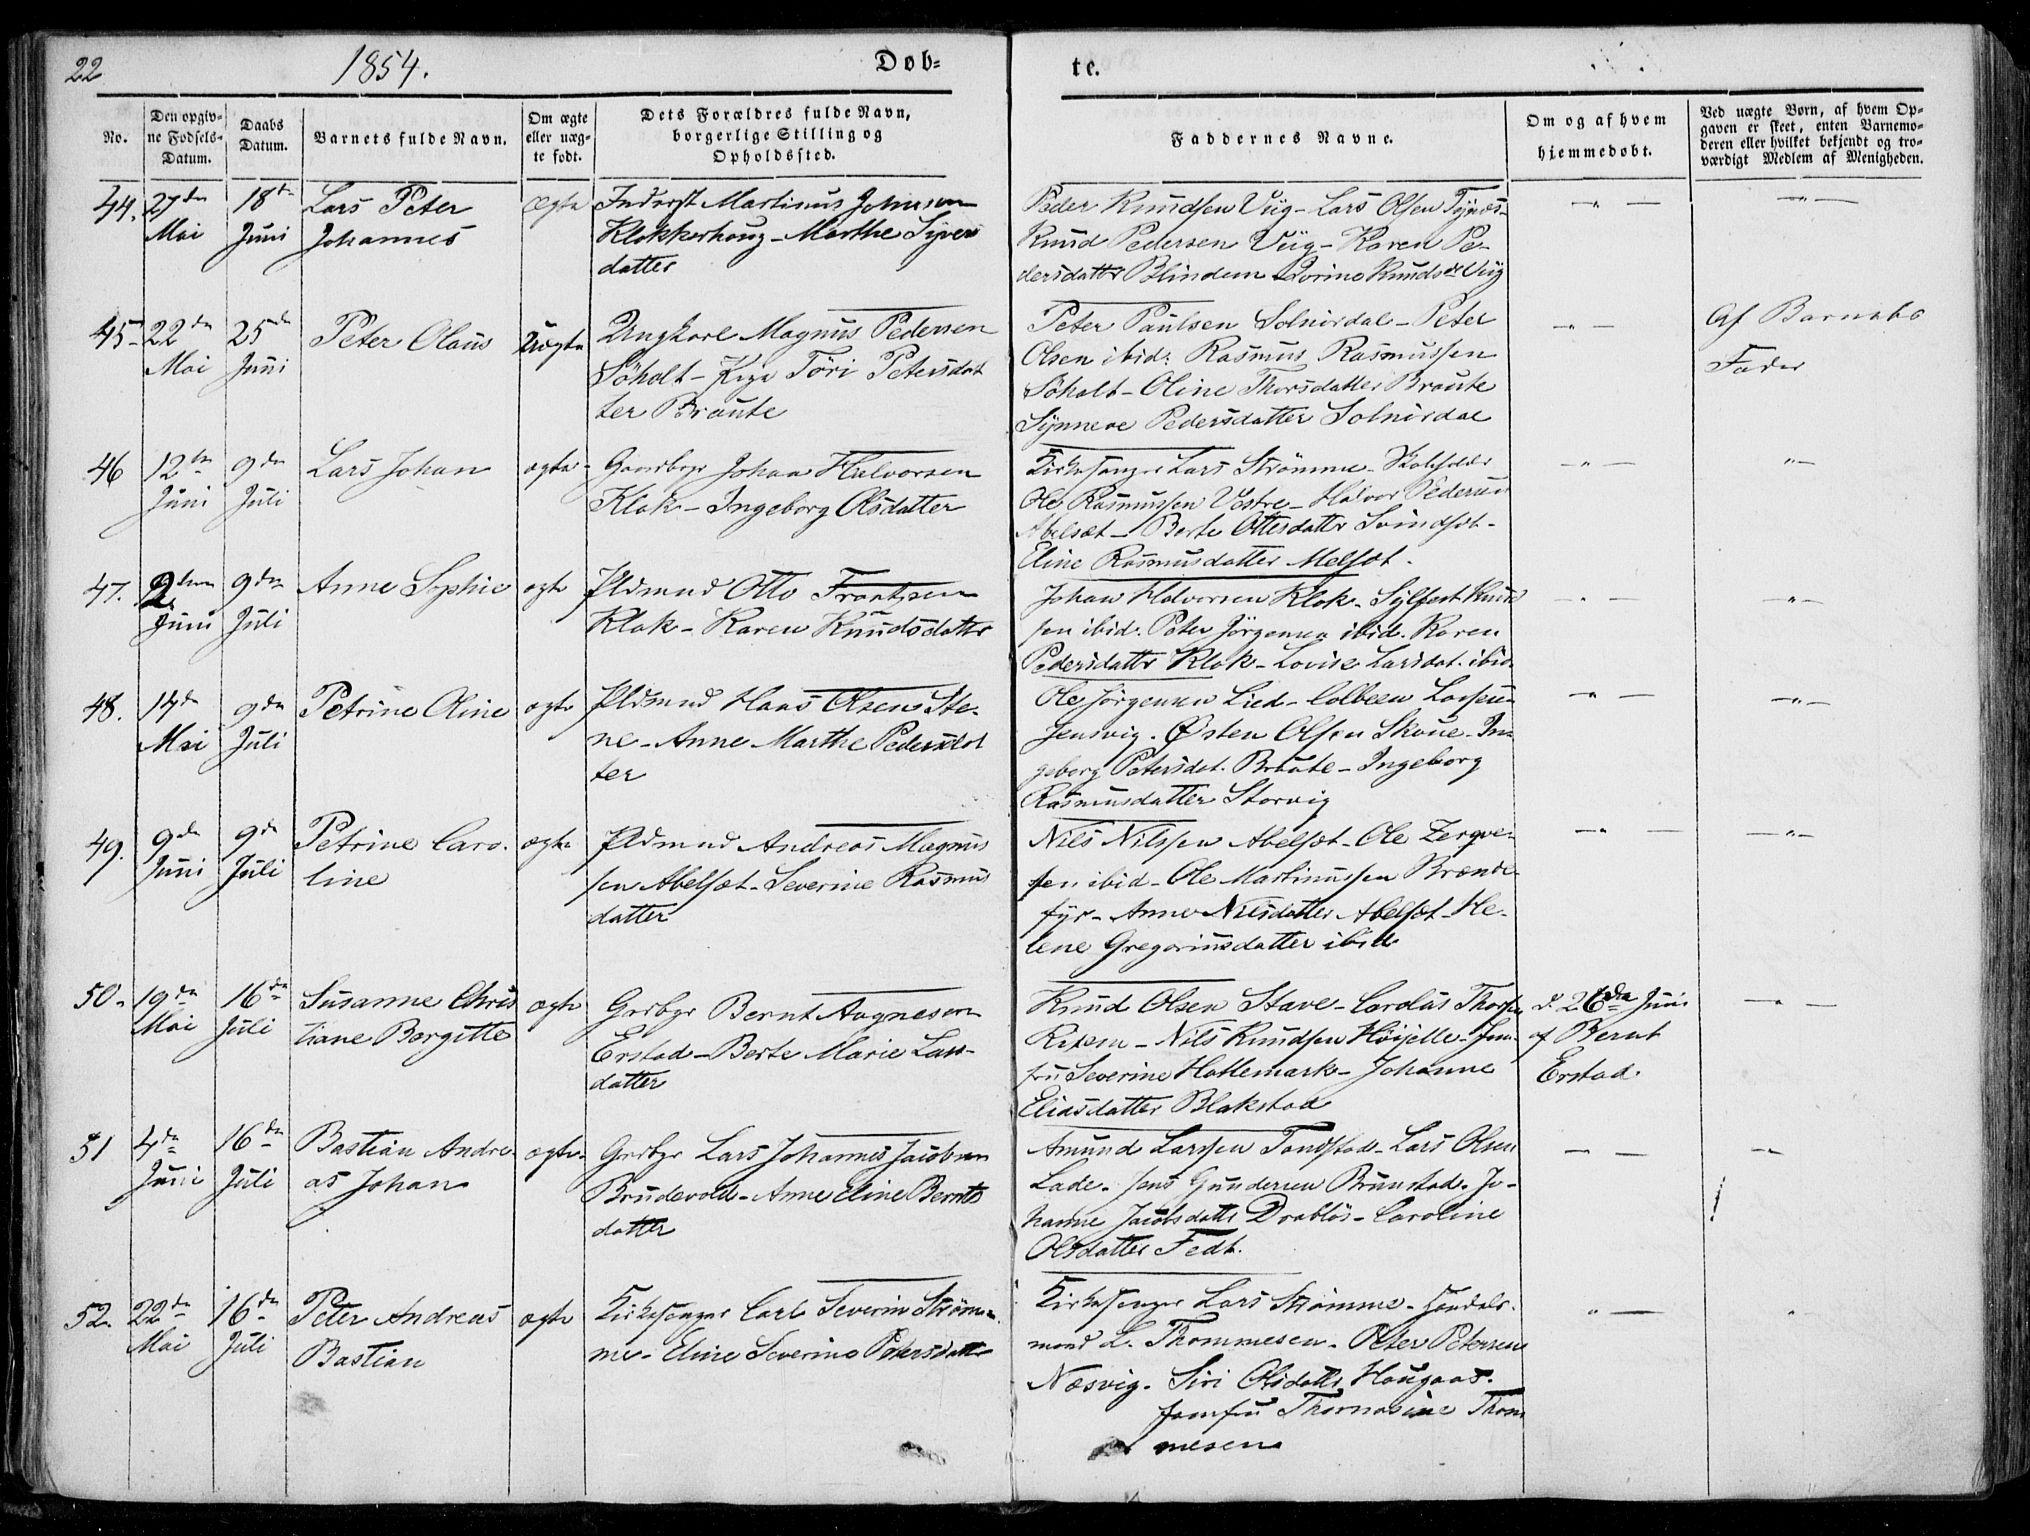 22
1854.
Døb-
te.
No.
Den opgiv-
ne Fødsels-
Datum.
Daabs
Datum.
Barnets fulde Navn.
Om ægte
eller uæg-
te født.
Dets Forældres fulde Navn,
borgerlige Stilling og
Opholdssted.
Faddernes Navne.
Om og af hvem
hjemmedøbt.
Ved uægte Børn, af hvem Op-
gaven er skeet, enten Barnemo-
deren eller hvilket bekjendt og tro-
værdigt Medlem af Menigheden.
44.
27de
Mai
18de
Juni
Lars Peter
Johannes
ægte
Martinus Johnsen
Klokkerhoug - Marthe Syvers
datter
Peder Knudsen Viig - Lars Olsen Tynæs-
Knud Pedersen Viig - Karen Pe-
dersdatter Blindem - Knudsdr Viig
45
22de
Mai
25de
Juni
Peter Olaus
Uægte
Ungkarl Magnus Pedersen
Söholt - Töri Petersdat
ter Braute
Peter Paulsen Solnördal - Peter
Olsen ibid: Rasmus Rasmussen
Söholt - Oline Thorsdatter Braute
Synneve Pedersdatter Solnördal
Af Barnets
Fader
46
12te
Juni
9de
Juli
Lars Johan
ægte
Gaardbgr Johan Halvorsen
Klok - Ingeborg Olsdatter
Kirkesanger Lars Strömme -
Ole Rasmussen Vestre - Halvor Pedersen
Abelsæt - Berte Ottesdatter Svindset -
Eline Rasmusdatter Melsæt.
47.
Juni
9de
Juli
Anne Sophie
ægte
Pldsmnd Otto Frantzsen
Klok - Karen Knudsdatter
Johan Halvorsen Klok - Sylfest Knud
sen ibid. Peter Jörgensen ibid. Karen
Pedersdatter Klok - Lovise Larsdat. ibid
48.
Mai
9de
Juli
Petrine Oline
ægte
Pldsmnd Hans Olsen Ste-
ne - Anne Marthe Pedersdat
ter
Ole Jörgensen Lied - Colbeen
Jensvig. Østen Olsen Skoue - In-
geborg Petersdat. Braute - Ingeborg
Rasmusdatter Storvig
49.
9de
Juni
9de
Juli
Petrine Caro-
line
ægte
Pldsmnd Andreas Magnus
sen Abelsæt - Severine Rasmus
datter
Nils Nilssen Abelsæt - Ole
sen ibid - Ole Martinussen Brænde-
fyr - Anne Nilsdatter Abelsæt - He-
lene Gregoriusdatter ibid
50.
19de
Mai
16de
Juli
Susanne Chris
tiane Borgitte
ægte
Grbgr Bernt
Erstad - Berte Marie Lars-
datter
Knud Olsen Stave - Carolus
- Nils Knudsen Höijelle - Jom-
fru Severine Hattemark - Johanne
Eliasdatter Blakstad
d. 26de Juni
af Bernt
Erstad.
51
4de
Juni
16de
Juli
Bastian Andre-
as Johan
ægte
Grbgr Lars Johannes Jacobsen
Brudevold - Anne Eline Bernts
datter
Amund Larssen Tandstad - Lars Olsen
Lade - Jens Gundersen Brunstad. Jo-
hanne Jacobsdatter Drabløs - Caroline
Olsdatter Fedt.
52.
22de
Mai
16de
Juli
Peter Andreas
Bastian
ægte
Kirkesanger Carl Severin Ström-
me - Eline Severine Petersdatter
Kirkesanger Lars Strömme - Handels-
mand L. Thommesen - Peter Petersen
Næsvig. Siri Olsdatter Haugaas.
Jomfru Thomasine Thom
mesen